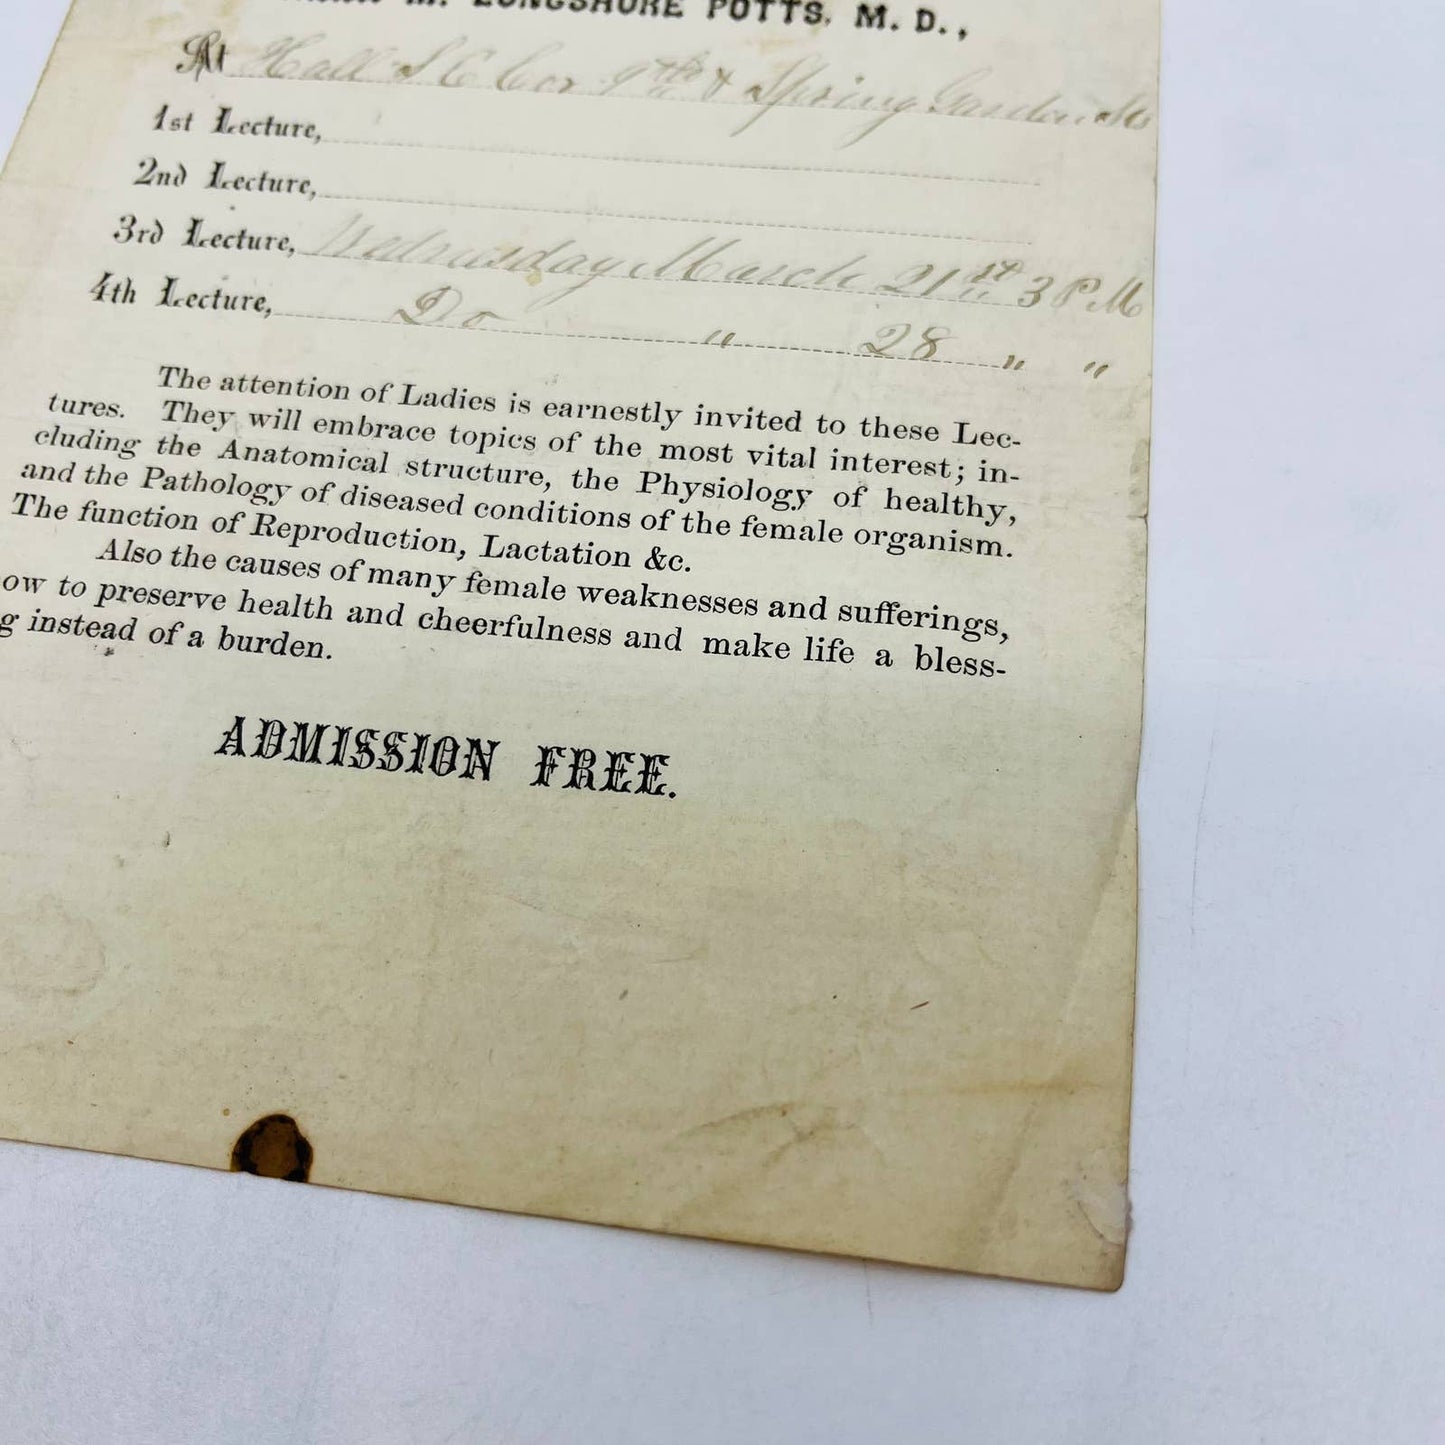 M. LONGSHORE POTTS, M. D.,
At Hall S E Cor 9th & Spring Garden Sts
1st Lecture,
2nd Lecture,
3rd Lecture, Wednesday March 21st 3 P M
4th Lecture, Do " 28 " "
The attention of Ladies is earnestly invited to these Lec-
tures. They will embrace topics of the most vital interest; in-
cluding the Anatomical structure, the Physiology of healthy,
and the Pathology of diseased conditions of the female organism.
The function of Reproduction, Lactation &c.
Also the causes of many female weaknesses and sufferings,
ow to preserve health and cheerfulness and make life a bless-
g instead of a burden.
ADMISSION FREE.